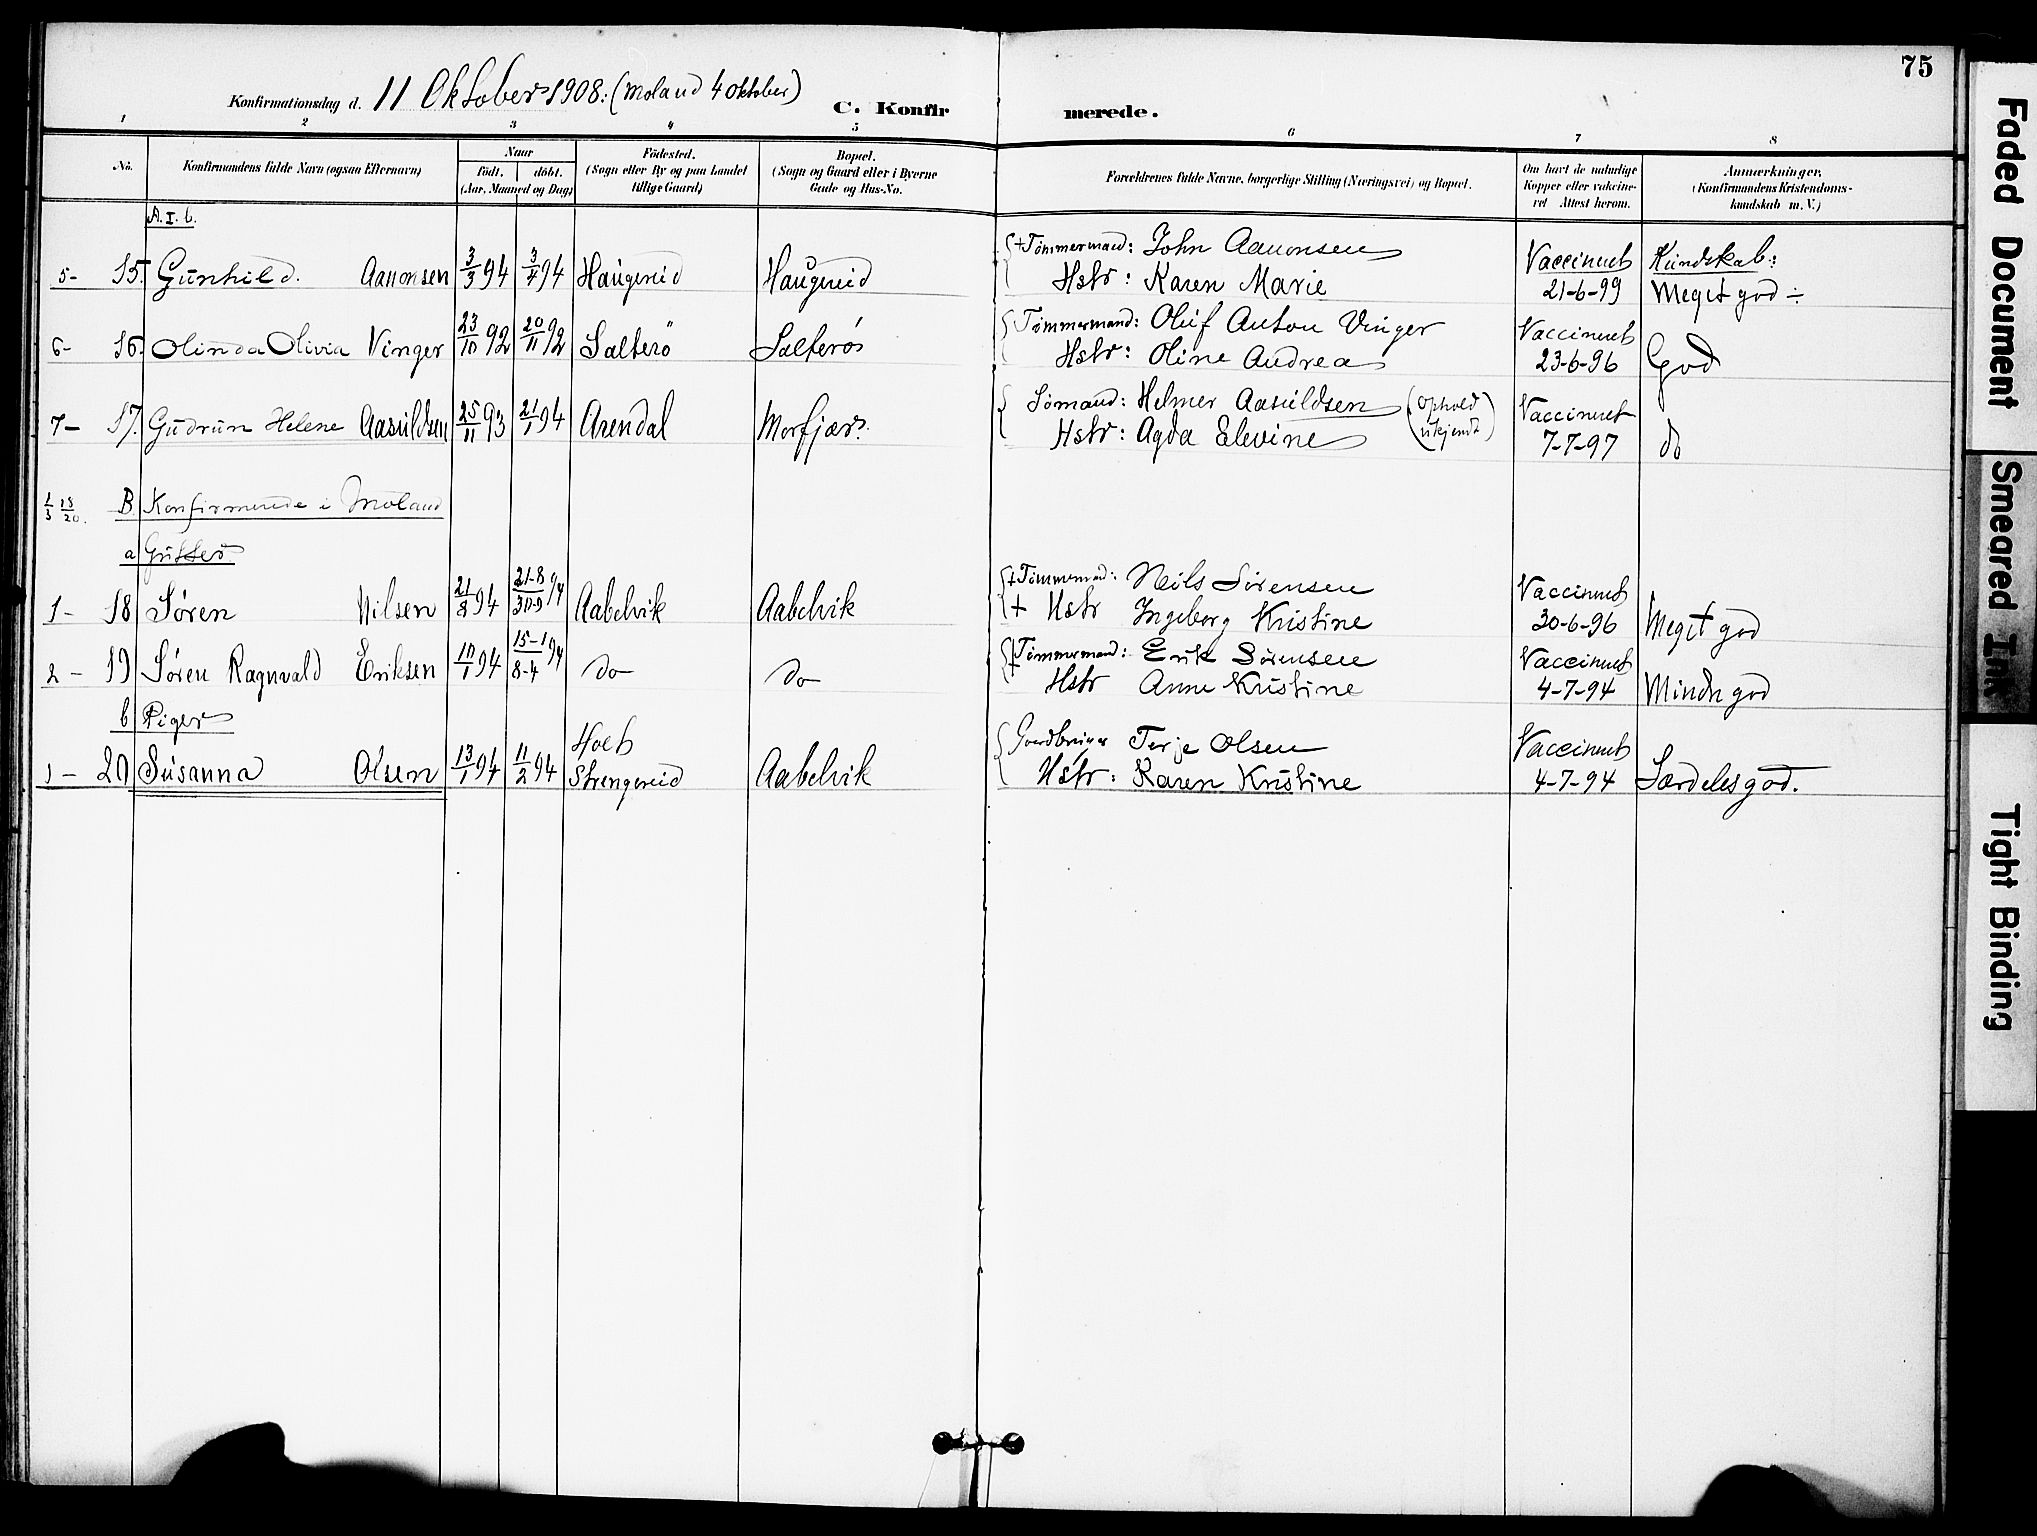 75
Konfirmationsdag d. 11 Oktober 1908: (Moland 4 oktober)
C. Konfir merede.
1 2 3 4 5 6 7 8
No.
Konfirmandens fulde Navn (ogsaa Efternavn)
Naar
født. døbt.
(Aar, Maaned og Dag)
Fødested.
(Sogn eller By og paa Landet
tillige Gaard)
Bopæl.
(Sogn og Gaard eller i Byerne
Gade og Hus-No.
Forældrenes fulde Navne, borgerlige Stilling (Næringsvei) og Bopæl.
Om havt de naturlige
Kopper eller vakcine-
ret Attest herom.
Anmærkninger.
(Konfirmandens Kristendoms-
kundskab m. V.)
A. I. b.
5- 15. Gunhild. Aanonsen 3/3 94 3/4 94 Haugereid Haugereid
{ +Tømmermand: John Aanonsen Vaccineret Kundskab:
Hstr: Karen Marie 21-6-99 Meget god ÷
6- 16. Olinda Olivia Vinger 23/10 92 20/11 92 Salterö Salterö
{ Tømmermand: Oluf Anton Vinger Vaccineret
Hstr: Oline Andrea 23-6-96 God
7- 17. Gudrun Helene Aasuldsen 25/11 93 21/1 94 Arendal Morfjær
{ Sømand: Helmer Aasuldsen (Ophold Vaccineret
Hstr: Agda Elevine ukjendt) 7-7-97 do
1/3 18/20. B. Konfirmerede i Moland
a Gutter
1- 18 Søren Nilsen 21/8 94 21-8/30-9 94 Aabelvik Aabelvik
{ +Tømmermd: Neils Sørensen Vaccineret
+ Hstr Ingeborg Kristine 30-6-96 Meget god
2- 19 Søren Ragnvald Eriksen 10/1 94 15-1/8-4 94 do do
{ +Tømmermand: Erik Sørensen Vaccineret
Hstr Anne Kristine 4-7-94 Mindre god
b Piger
1- 20 Susanna Olsen 13/1 94 11/2 94 Holt
Strengereid Aabelvik
{ Gaardbruger Terje Olsen Vaccineret
Hstr: Karen Kristine 4-7-94 Særdeles god.
Faded Document
Smeared Ink
Tight Binding